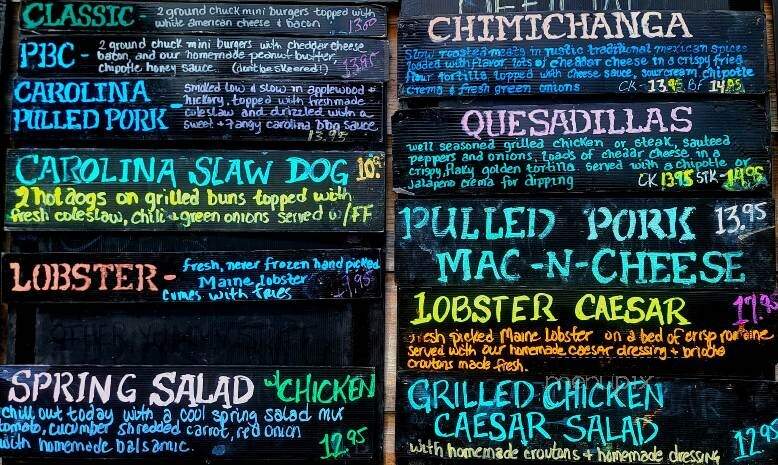 CLASSIC - 2 ground chuck mini burgers topped with
white american cheese & bacon 13.60
PBC - 2 ground chuck mini burgers with cheddar cheese,
bacon, and our homemade peanut butter,
chipotle honey sauce. (don't be skeered!) 13.95
CAROLINA PULLED PORK - smoked low & slow in applewood +
hickory, topped with fresh made
coleslaw and drizzled with a
sweet + tangy carolina bbq sauce
13.95
CAROLINA SLAW DOG
2 hotdogs on grilled buns topped with
fresh coleslaw, chili + green onions served w/FF
LOBSTER - fresh, never frozen hand picked
Maine lobster
comes with fries
SPRING SALAD w/ CHICKEN
chill out today with a cool spring salad mix
tomato, cucumber shredded carrot, red onion
with homemade balsamic. 12.95
CHIMICHANGA
Slow roasted meats in rustic traditional mexican spices
loaded with flavor lots of cheddar cheese in a crispy fried
flour tortilla topped with cheese sauce, sour cream chipotle
crema & fresh green onions CK - 13.95 BF 14.95
QUESADILLAS
well seasoned grilled chicken or steak, sauteed
peppers and onions, loads of chedar cheese, in a
crispy, flaky golden tortilla served with a chipotle or
jalapeno crema for dipping CK 13.95 STK - 14.95
PULLED PORK 13.95
MAC-N-CHEESE
LOBSTER CAESAR
fresh picked Maine lobster on a bed of crisp romaine
served with our homemade caesar dressing + brioche
croutons made fresh.
GRILLED CHICKEN
CAESAR SALAD
with homemade croutons + homemade dressing 12.95